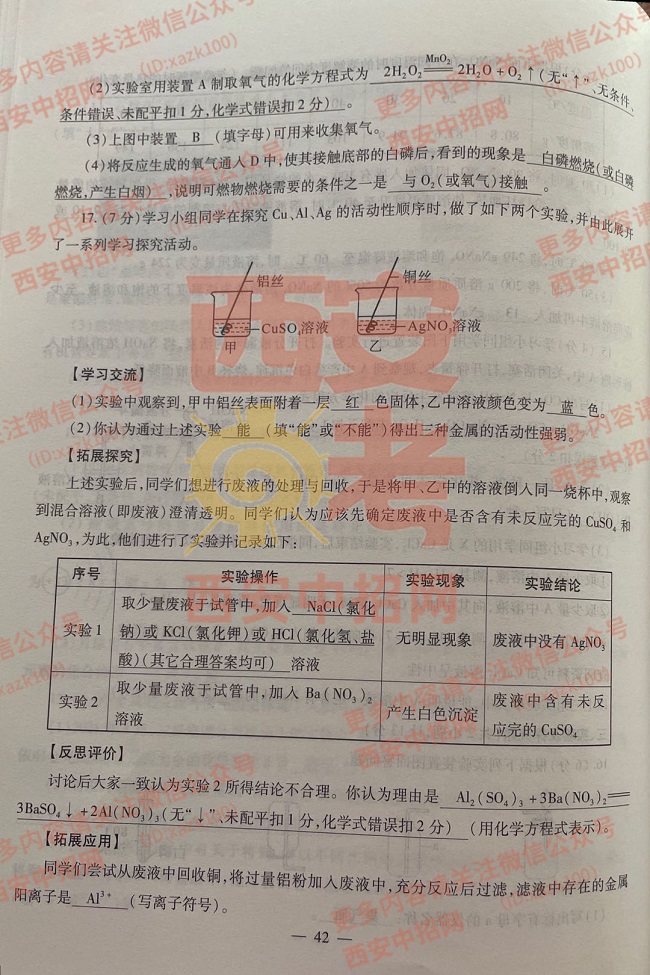 (2)实验室用装置 A 制取氧气的化学方程式为 2H₂O₂ MnO₂ ══ 2H₂O + O₂↑(无“↑”、无条件、
条件错误、未配平扣 1 分,化学式错误扣 2 分) 。
(3)上图中装置 B (填字母)可用来收集氧气。
(4)将反应生成的氧气通入 D 中,使其接触底部的白磷后,看到的现象是 白磷燃烧(或白磷
燃烧,产生白烟) ,说明可燃物燃烧需要的条件之一是 与 O₂(或氧气)接触 。
17. (7 分)学习小组同学在探究 Cu、Al、Ag 的活动性顺序时,做了如下两个实验,并由此展开
了一系列学习探究活动。
铝丝 铜丝
CuSO₄溶液 AgNO₃溶液
甲 乙
【学习交流】
(1)实验中观察到,甲中铝丝表面附着一层 红 色固体,乙中溶液颜色变为 蓝 色。
(2)你认为通过上述实验 能 (填“能”或“不能”)得出三种金属的活动性强弱。
【拓展探究】
上述实验后,同学们想进行废液的处理与回收,于是将甲、乙中的溶液倒入同一烧杯中,观察
到混合溶液(即废液)澄清透明。同学们认为应该先确定废液中是否含有未反应完的 CuSO₄ 和
AgNO₃,为此,他们进行了实验并记录如下:
序号 实验操作 实验现象 实验结论
取少量废液于试管中,加入 NaCl(氯化
实验 1 钠)或 KCl(氯化钾)或 HCl(氯化氢、盐 无明显现象 废液中没有 AgNO₃
酸)(其它合理答案均可) 溶液
实验 2 取少量废液于试管中,加入 Ba(NO₃)₂ 产生白色沉淀 废液中含有未反
溶液 应完的 CuSO₄
【反思评价】
讨论后大家一致认为实验 2 所得结论不合理。你认为理由是 Al₂(SO₄)₃ + 3Ba(NO₃)₂══
3BaSO₄↓ + 2Al(NO₃)₃(无“↓”、未配平扣 1 分,化学式错误扣 2 分) (用化学方程式表示)。
【拓展应用】
同学们尝试从废液中回收铜,将过量铝粉加入废液中,充分反应后过滤,滤液中存在的金属
阳离子是 Al³⁺ (写离子符号)。
— 42 —
更多内容请关注微信公众号
西安中招网
(ID:xazk100)
西安
中考
西安中招网